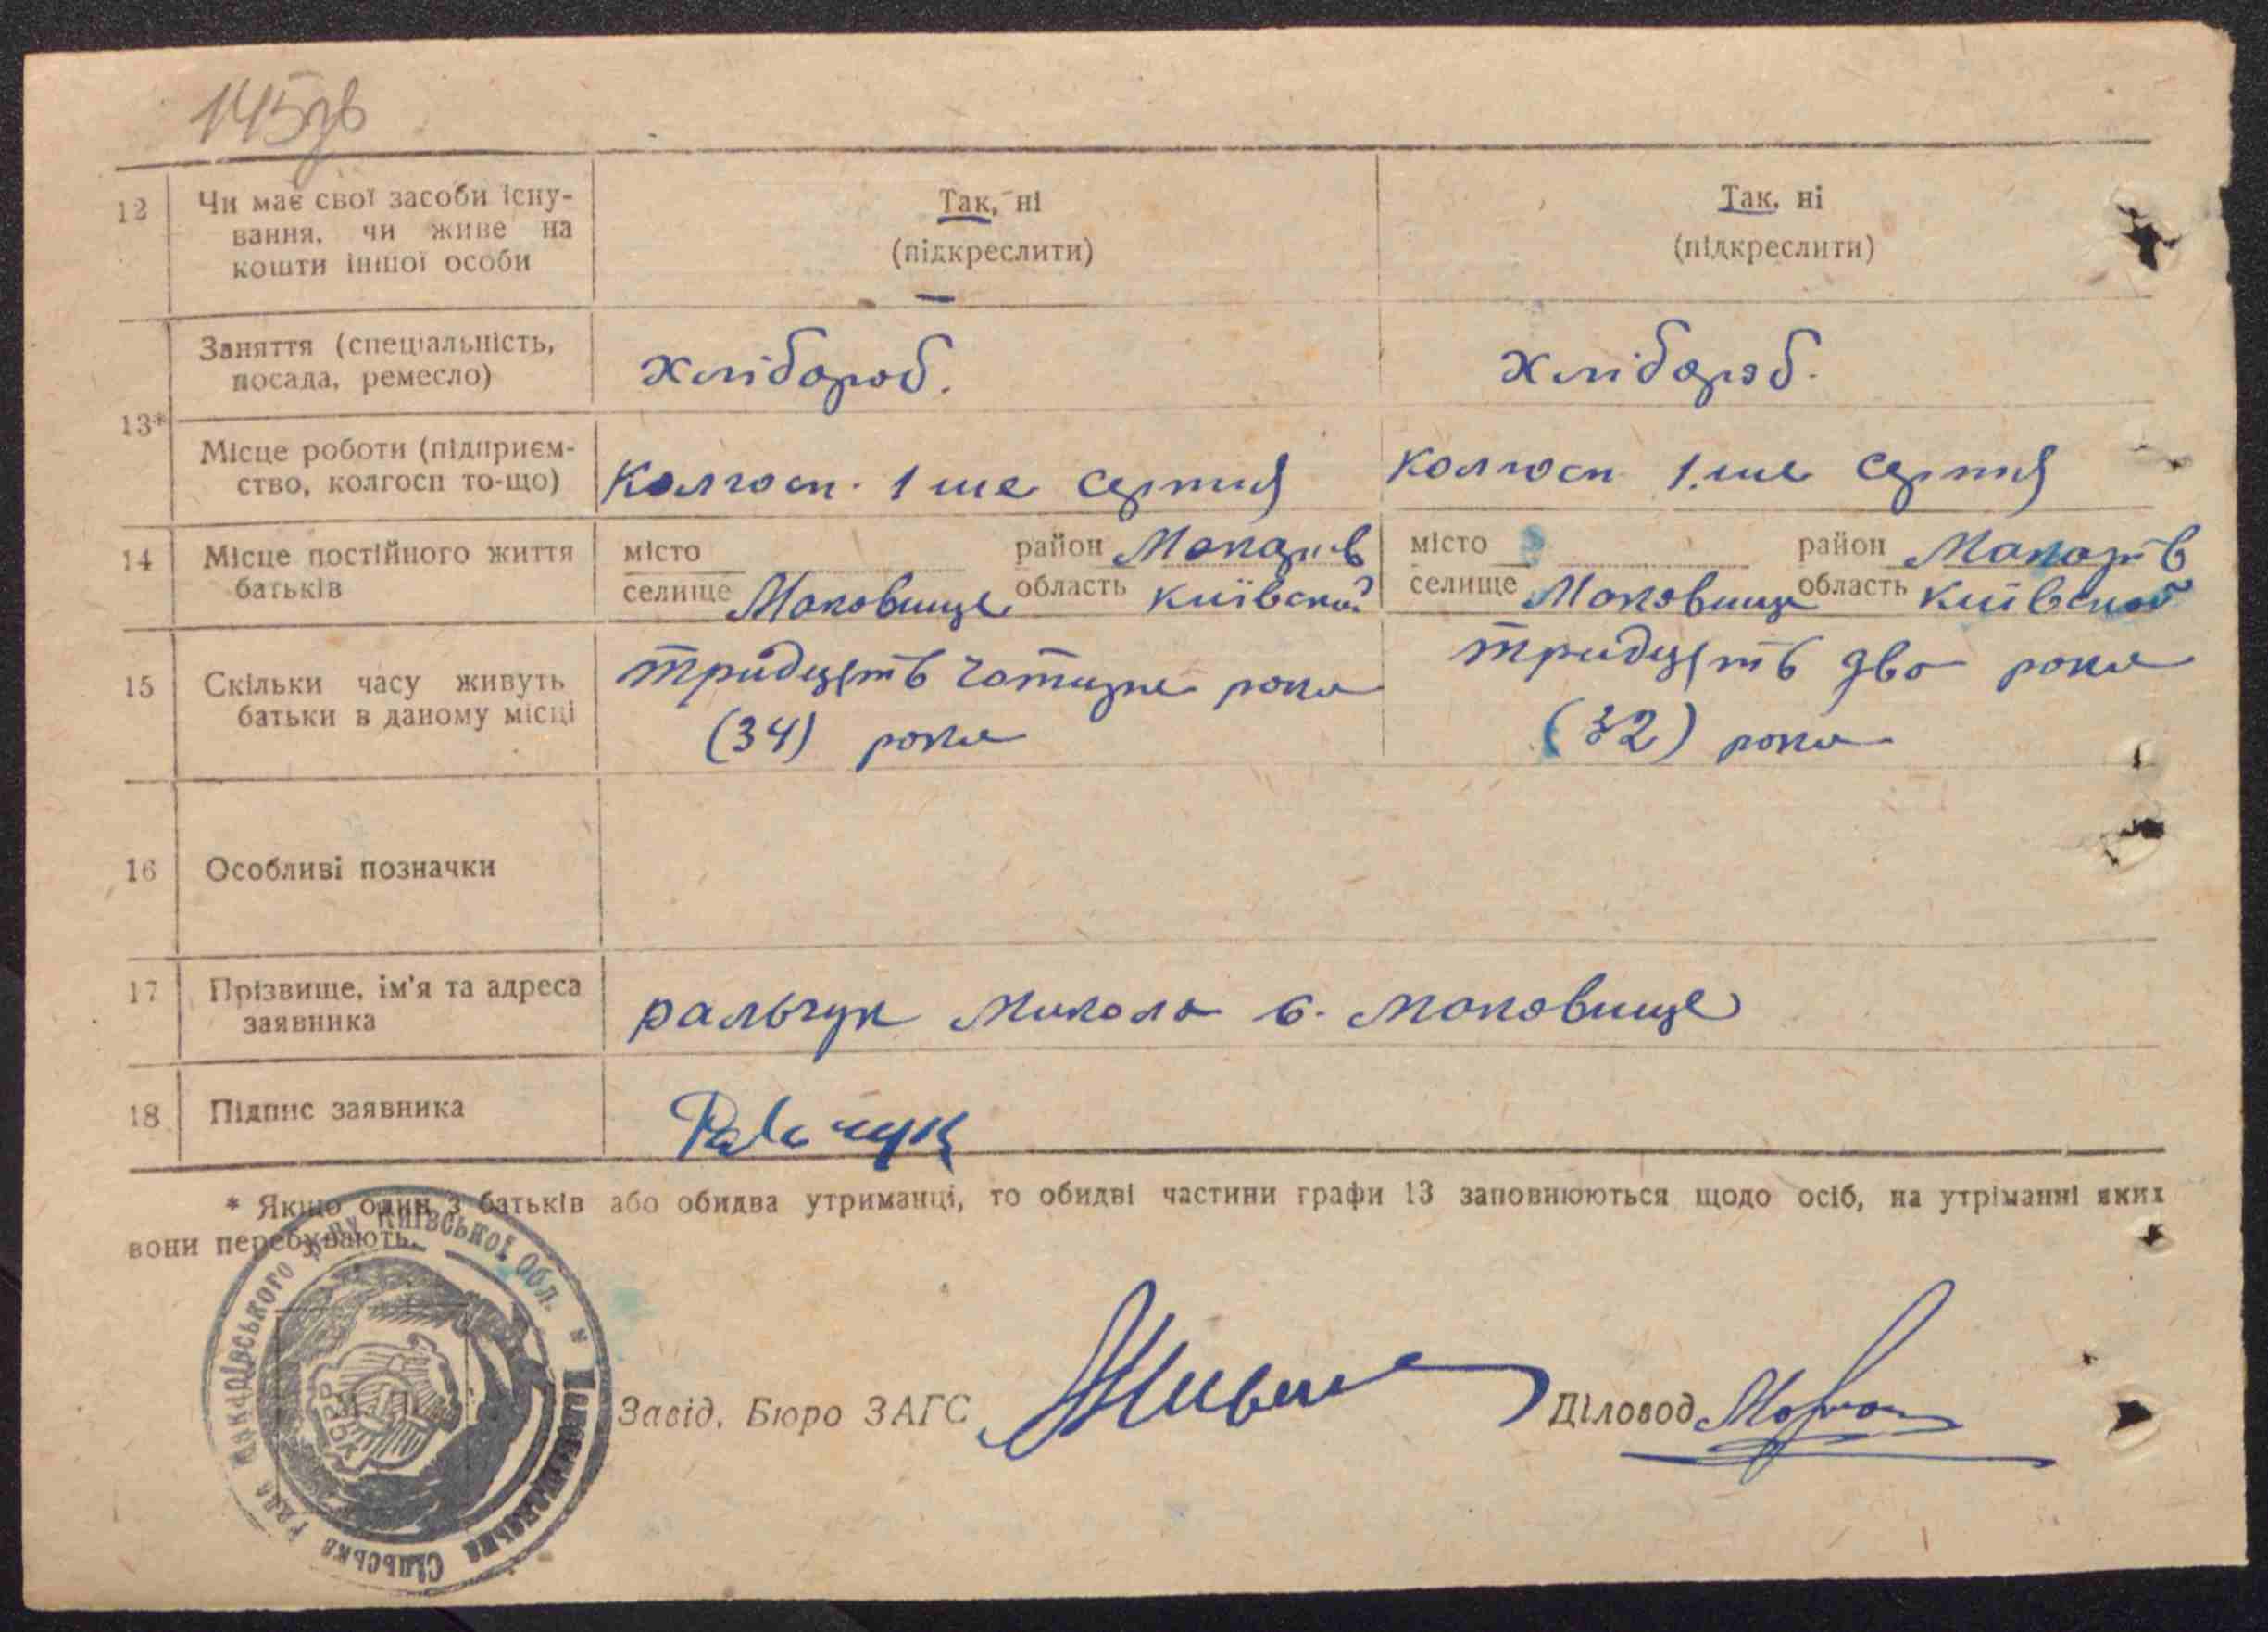 145зв
12 Чи має свої засоби існу-
вання, чи живе на
кошти іншої особи
Так, ні
(підкреслити)
Так, ні
(підкреслити)
13*
Заняття (спеціальність,
посада, ремесло)
хлібороб.
хлібороб.
Місце роботи (підприєм-
ство, колгосп то-що)
Колгосп 1 ше серпня
Колгосп 1.ше серпня
14 Місце постійного життя
батьків
місто район Макарів
селище Маковище область Київской
місто район Макарів
селище Маковище область Київской
15 Скільки часу живуть
батьки в даному місці
тридцять чотири роки
(34) роки
тридцять два роки
(32) роки
16 Особливі позначки
17 Прізвище, ім'я та адреса
заявника
Ральчук Микола с. Маковище
18 Підпис заявника
Ральчук
* Якщо один з батьків або обидва утриманці, то обидві частини графи 13 заповнюються щодо осіб, на утріманні яких
вони перебувають.
Макарівського р-ну Київської Обл.
сільська рада
УСРР
Завід. Бюро ЗАГС
Діловод